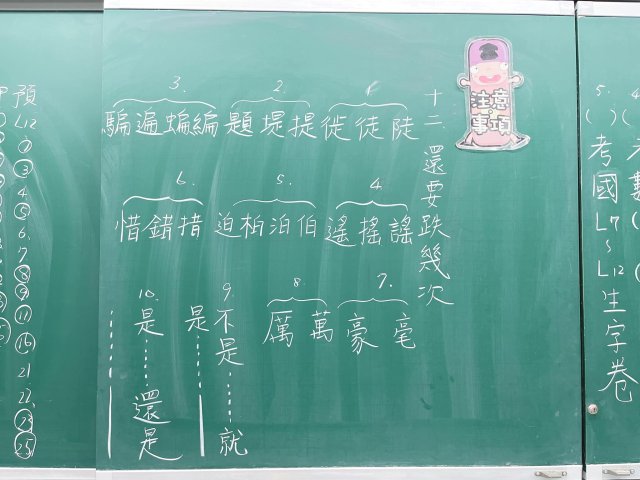 4.
考
5.
( )
考國L7~L12生字卷
注意
事項
十二、還要跌幾次
1.
陡徒徙
2.
提堤題
3.
編蝙遍騙
4.
謠搖遙
5.
伯泊柏迫
6.
措錯惜
7.
毫豪
8.
萬厲
9.
不是……就是……
10.
是……還是……
預
L12
②
③
4
⑤
6
7
⑧
⑨
⑪
⑯
21
22
㉓
㉕